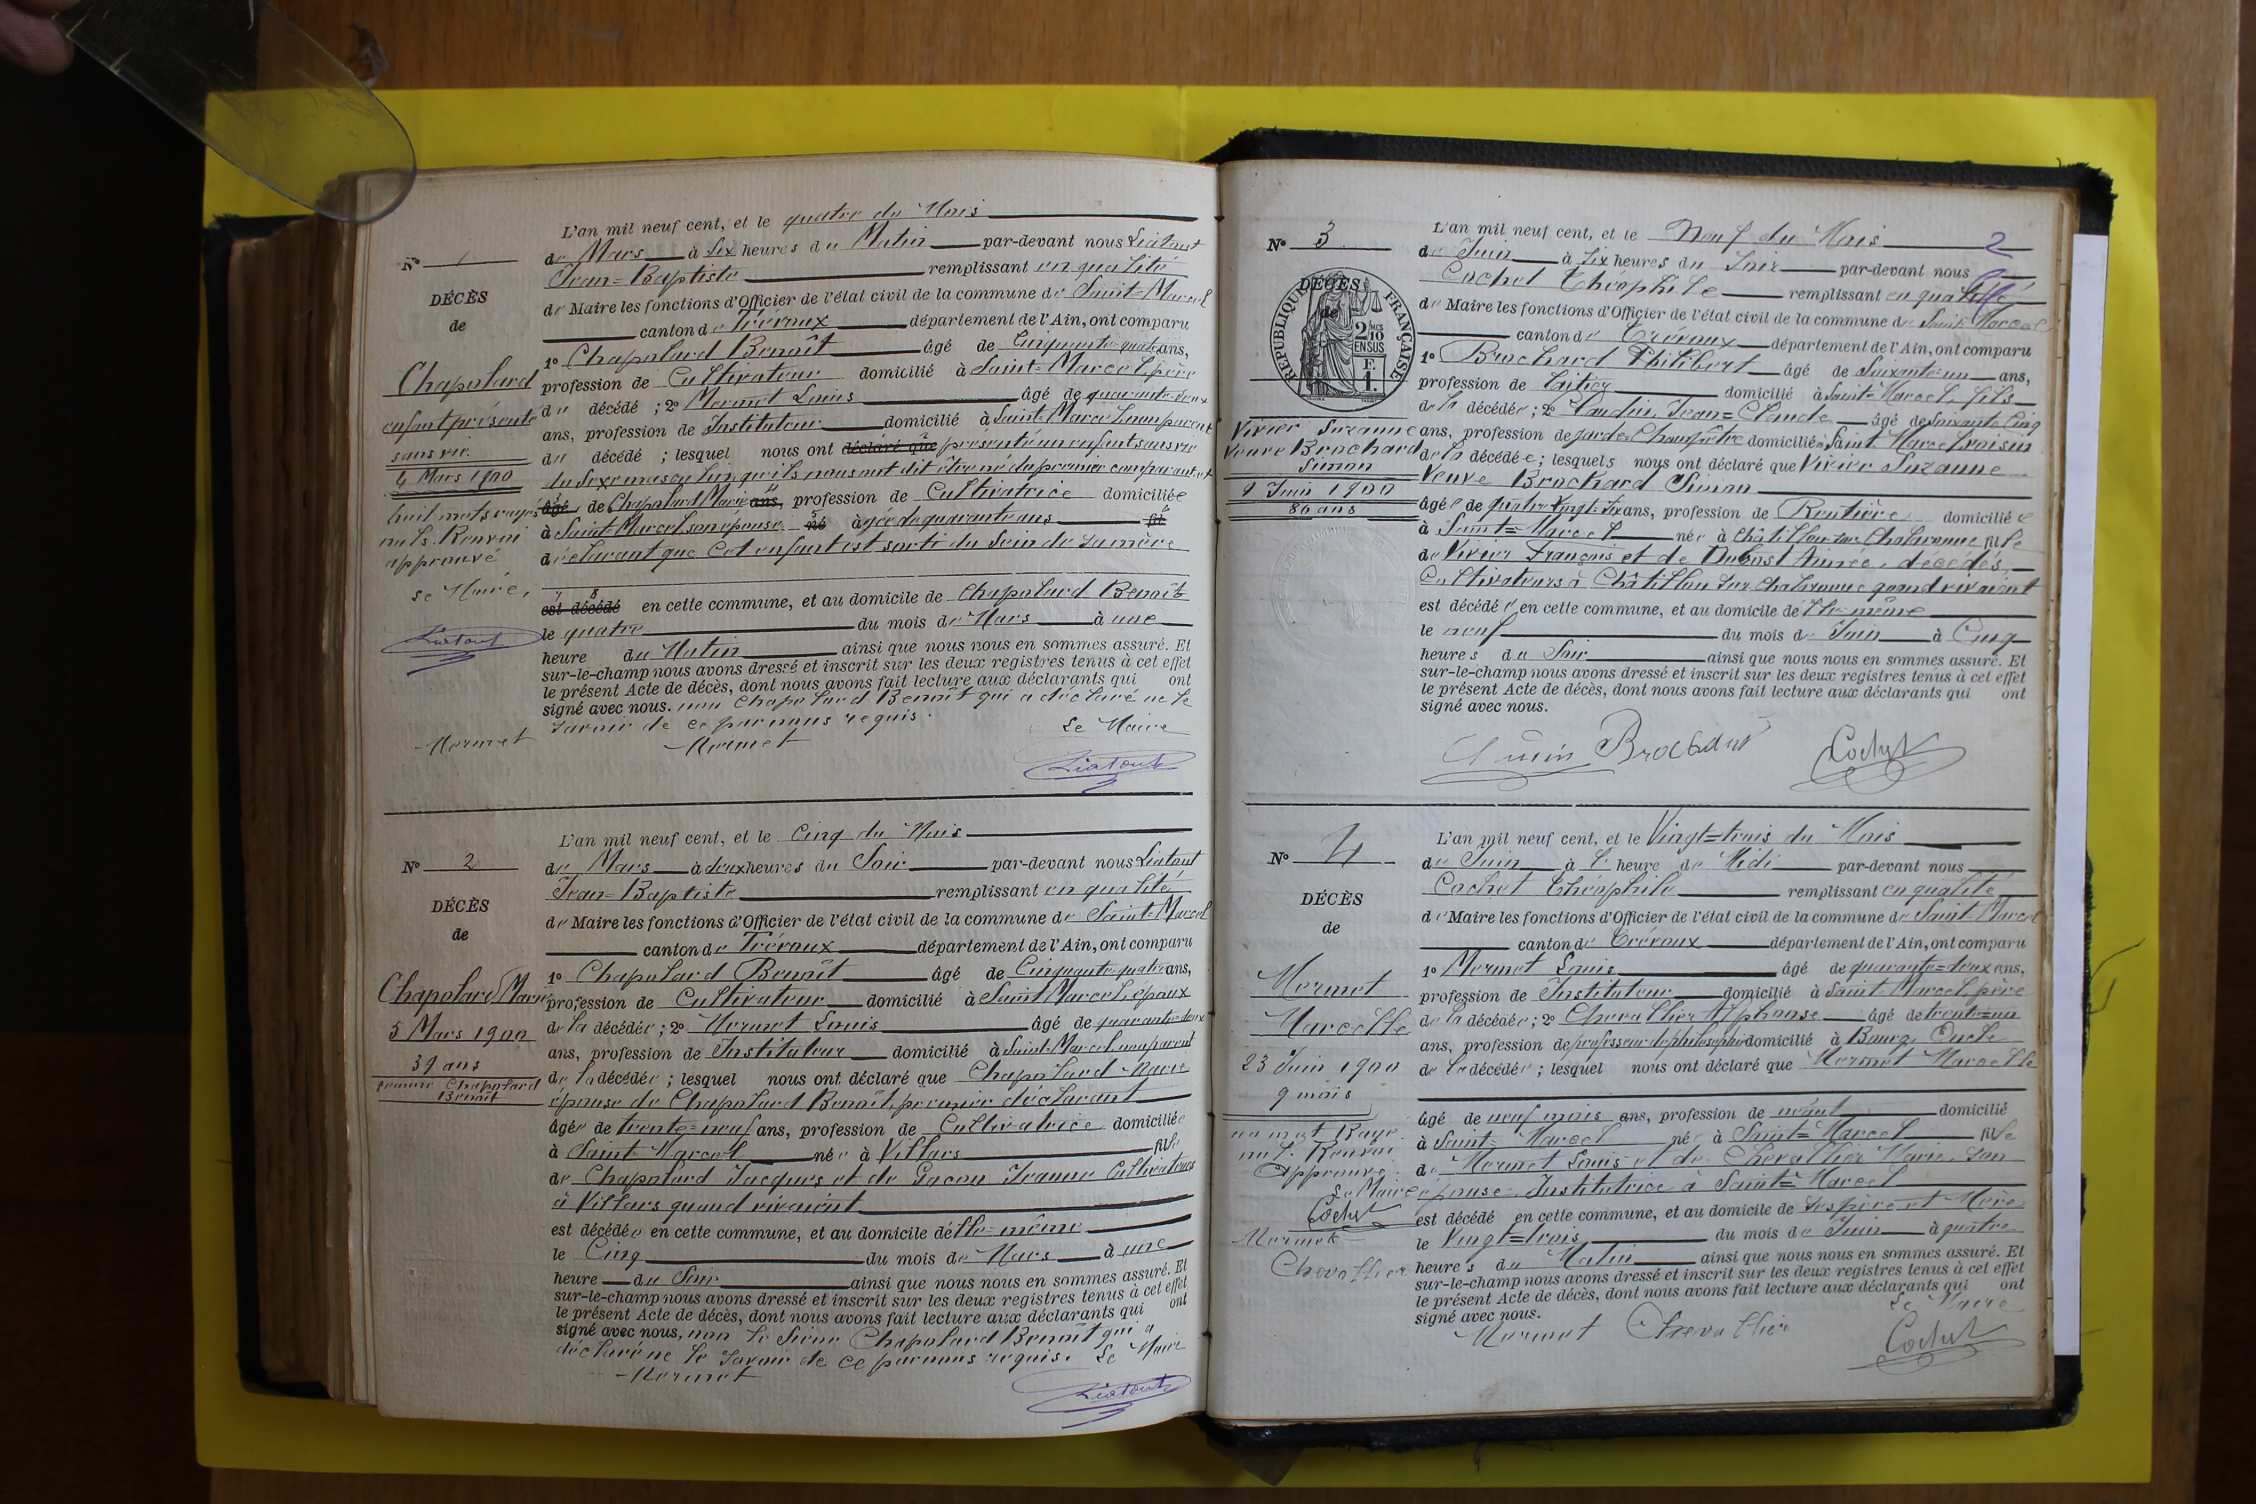 L'an mil neuf cent, et le quatre du Mois
N° 1
de Mars à six heures du Matin par-devant nous Liatout
Jean=Baptiste remplissant en qualité
DÉCÈS
de Maire les fonctions d'Officier de l'état civil de la commune de Saint=Marcel
de
canton de Trévoux département de l'Ain, ont comparu
1° Chapolard Benoît âgé de Cinquante quatre ans,
Chapolard
profession de Cultivateur domicilié à Saint=Marcel père
enfant présenté
du décédé ; 2° Mermet Louis âgé de quarante-deux
sans vie
ans, profession de Instituteur domicilié à Saint Marcel non parent
4 Mars 1900
du décédé ; lesquel nous ont déclaré que présenté un enfant sans vie
du sexe masculin qu'ils nous ont dit être né du premier comparant et
huit mots rayés
âgé de Chapolard Marie ans, profession de Cultivatrice domiciliée
nuls. Renvoi
à Saint Marcel son épouse né âgée de quarante ans fil
approuvé
déclarant que cet enfant est sorti du sein de sa mère
Le Maire,
est décédé en cette commune, et au domicile de Chapolard Benoît
Liatout
le quatre du mois de Mars à une
heure du Matin ainsi que nous nous en sommes assuré. Et
sur-le-champ nous avons dressé et inscrit sur les deux registres tenus à cet effet
le présent Acte de décès, dont nous avons fait lecture aux déclarants qui ont
signé avec nous. non Chapolard Benoît qui a déclaré ne le
savoir de ce par nous requis.
Le Maire
Mermet Mermet
Liatout
L'an mil neuf cent, et le Cinq du Mois
N° 2
de Mars à deux heures du Soir par-devant nous Liatout
Jean=Baptiste remplissant en qualité
DÉCÈS
de Maire les fonctions d'Officier de l'état civil de la commune de Saint=Marcel
de
canton de Trévoux département de l'Ain, ont comparu
1° Chapolard Benoît âgé de Cinquante quatre ans,
Chapolard Marie
profession de Cultivateur domicilié à Saint Marcel, époux
5 Mars 1900
de la décédée ; 2° Mermet Louis âgé de quarante-deux
39 ans
ans, profession de Instituteur domicilié à Saint-Marcel non parent
femme Chapolard
Benoît
de la décédée ; lesquel nous ont déclaré que Chapolard Marie
épouse de Chapolard Benoît, premier déclarant
âgée de trente=neuf ans, profession de Cultivatrice domiciliée
à Saint-Marcel née à Villars fille
de Chapolard Jacques et de Gacon Jeanne Cultivateurs
à Villars quand vivaient
est décédée en cette commune, et au domicile d'elle=même
le Cinq du mois de Mars à une
heure du Soir ainsi que nous nous en sommes assuré. Et
sur-le-champ nous avons dressé et inscrit sur les deux registres tenus à cet effet
le présent Acte de décès, dont nous avons fait lecture aux déclarants qui ont
signé avec nous, non le sieur Chapolard Benoît qui a
déclaré ne le savoir de ce par nous requis. Le Maire
Mermet
Liatout
2
L'an mil neuf cent, et le Neuf du Mois
N° 3
de Juin à six heures du Soir par-devant nous
Cochet Théophile remplissant en qualité
DÉCÈS
de
RÉPUBLIQUE FRANÇAISE
2/10 EN SUS
F. 1.
de Maire les fonctions d'Officier de l'état civil de la commune de Saint-Marcel
canton de Trévoux département de l'Ain, ont comparu
1° Brochard Philibert âgé de Soixante=un ans,
profession de domicilié à Saint=Marcel, fils
de la décédée ; 2° Claudin Jean=Claude âgé de soixante cinq
Vivier Suzanne
ans, profession de garde Champêtre domicilié à Saint Marcel voisin
Veuve Brochard
Simon
de la décédée ; lesquels nous ont déclaré que Vivier Suzanne
9 Juin 1900
Veuve Brochard Simon
86 ans
âgée de quatre vingt-six ans, profession de Rentière domiciliée
à Saint=Marcel née à Châtillon sur Chalaronne fille
de Vivier François et de Dubost Aimée, décédés,
Cultivateurs à Châtillon sur Chalaronne quand vivaient
est décédée en cette commune, et au domicile de Elle même
le neuf du mois de Juin à Cinq
heures du Soir ainsi que nous nous en sommes assuré. Et
sur-le-champ nous avons dressé et inscrit sur les deux registres tenus à cet effet
le présent Acte de décès, dont nous avons fait lecture aux déclarants qui ont
signé avec nous.
Brochard Cochet
L'an mil neuf cent, et le Vingt=trois du Mois
N° 4
de Juin à l' heure de Midi par-devant nous
Cochet Théophile remplissant en qualité
DÉCÈS
de Maire les fonctions d'Officier de l'état civil de la commune de Saint Marcel
de
canton de Trévoux département de l'Ain, ont comparu
1° Mermet Louis âgé de quarante=deux ans,
Mermet
profession de Instituteur domicilié à Saint=Marcel père
Marcelle
de la décédée ; 2° Chevallier Alphonse âgé de trente=un
ans, profession de professeur de philosophie domicilié à Bourg, Oncle
23 Juin 1900
de la décédée ; lesquel nous ont déclaré que Mermet Marcelle
9 mois
âgé de neuf mois ans, profession de néant domicilié
un mot Rayé
nul. Renvoi
à Saint=Marcel née à Saint=Marcel fille
Approuvé.
de Mermet Louis et de Chevallier Marie, son
Le Maire
épouse, Institutrice à Saint=Marcel
Cochet
est décédé en cette commune, et au domicile de ses père et Mère
Mermet
le Vingt=trois du mois de Juin à quatre
Chevallier
heures du Matin ainsi que nous nous en sommes assuré. Et
sur-le-champ nous avons dressé et inscrit sur les deux registres tenus à cet effet
le présent Acte de décès, dont nous avons fait lecture aux déclarants qui ont
signé avec nous.
Le Maire
Mermet Chevallier
Cochet